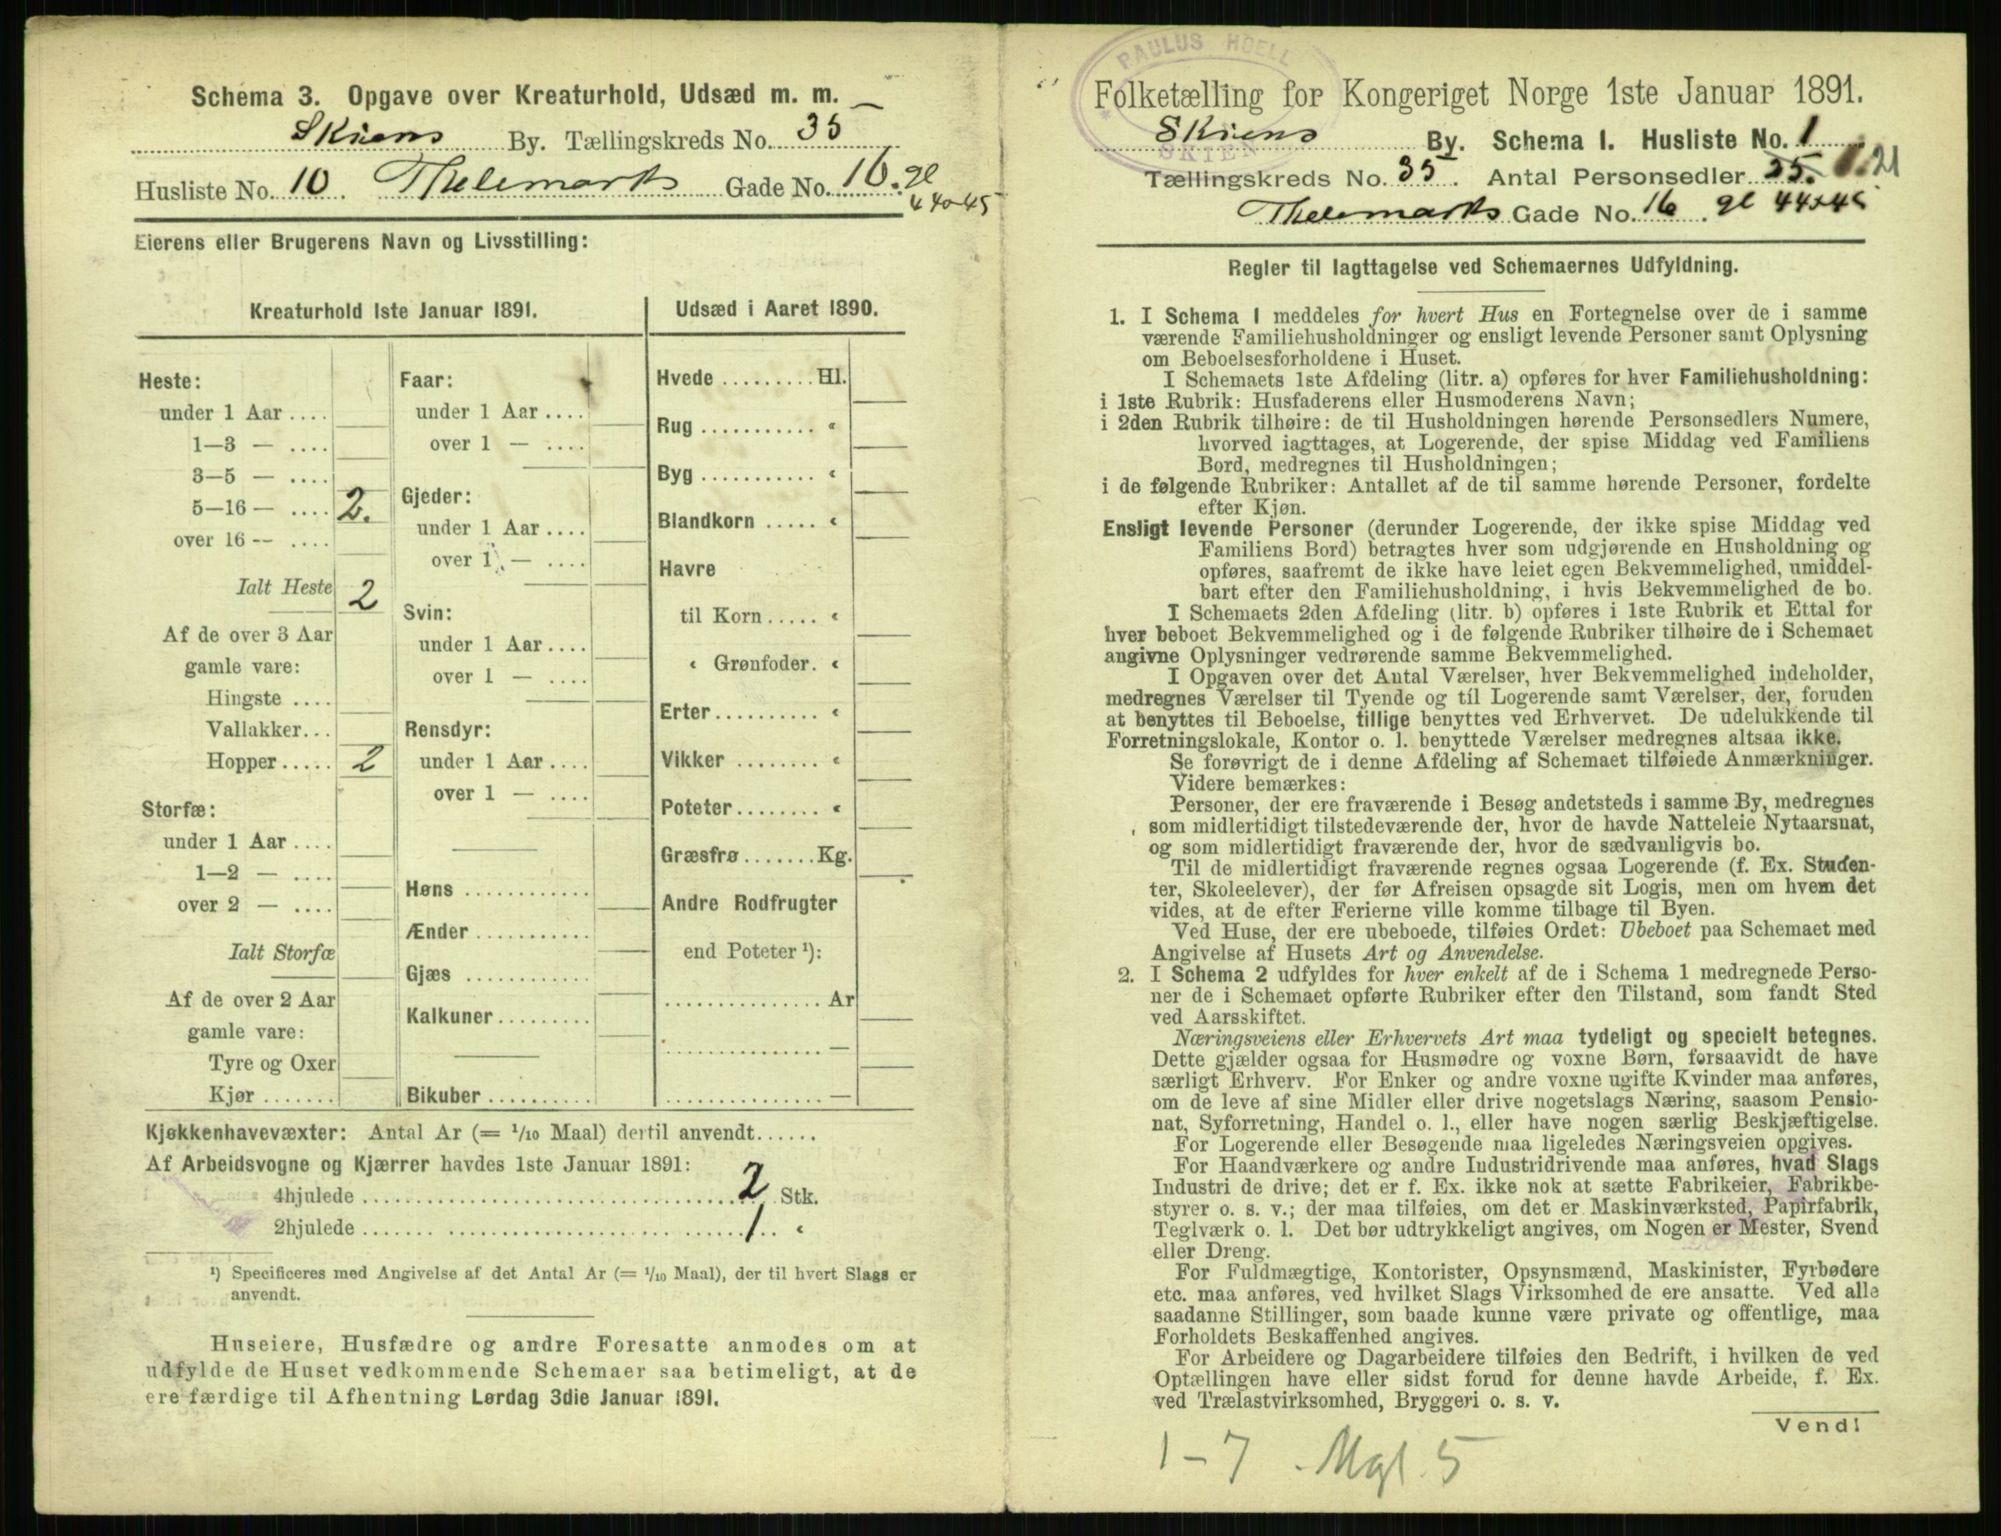 Schema 3. Opgave over Kreaturhold, Udsæd m. m.
Skiens By. Tællingskreds No. 35
Husliste No. 10 Thelemarks Gade No. 16. gl
44 & 45
Eierens eller Brugerens Navn og Livsstilling:
Kreaturhold 1ste Januar 1891.
Heste:
under 1 Aar ....
1—3 — ....
3—5 — ....
5—16 — .... 2.
over 16 -- ....
Ialt Heste 2
Af de over 3 Aar
gamle vare:
Hingste ....
Vallakker...
Hopper ..... 2
Storfæ:
under 1 Aar ....
1—2 — ....
over 2 — ....
Ialt Storfæ
Af de over 2 Aar
gamle vare:
Tyre og Oxer
Kjør .......
Faar:
under 1 Aar ....
over 1 — ....
Gjeder:
under 1 Aar ....
over 1 — ....
Svin:
under 1 Aar ....
over 1 — ....
Rensdyr:
under 1 Aar ....
over 1 — ....
Høns ............
Ænder ...........
Gjæs ............
Kalkuner.........
Bikuber ..........
Udsæd i Aaret 1890.
Hvede ......... Hl.
Rug ........... «
Byg ........... «
Blandkorn ..... «
Havre
til Korn ..... «
« Grønfoder. «
Erter.......... «
Vikker ........ «
Poteter........ «
Græsfrø ....... Kg.
Andre Rodfrugter
end Poteter ¹):
............... Ar
............... —
............... —
Kjøkkenhavevæxter: Antal Ar (= 1/10 Maal) dertil anvendt......
Af Arbeidsvogne og Kjærrer havdes 1ste Januar 1891:
4hjulede .................................... 2 Stk.
2hjulede .................................... 1 «
¹) Specificeres med Angivelse af det Antal Ar (= 1/10 Maal), der til hvert Slags er
anvendt.
Huseiere, Husfædre og andre Foresatte anmodes om at
udfylde de Huset vedkommende Schemaer saa betimeligt, at de
ere færdige til Afhentning Lørdag 3die Januar 1891.
PAULUS HOELL
SKIEN
Folketælling for Kongeriget Norge 1ste Januar 1891.
Skiens By. Schema I. Husliste No. 1
Tællingskreds No. 35. Antal Personsedler 25. 21
Thelemarks Gade No. 16. gl 44 & 45
Regler til Iagttagelse ved Schemaernes Udfyldning.
1. I Schema 1 meddeles for hvert Hus en Fortegnelse over de i samme
værende Familiehusholdninger og ensligt levende Personer samt Oplysning
om Beboelsesforholdene i Huset.
I Schemaets 1ste Afdeling (litr. a) opføres for hver Familiehusholdning:
i 1ste Rubrik: Husfaderens eller Husmoderens Navn;
i 2den Rubrik tilhøire: de til Husholdningen hørende Personsedlers Numere,
hvorved iagttages, at Logerende, der spise Middag ved Familiens
Bord, medregnes til Husholdningen;
i de følgende Rubriker: Antallet af de til samme hørende Personer, fordelte
efter Kjøn.
Ensligt levende Personer (derunder Logerende, der ikke spise Middag ved
Familiens Bord) betragtes hver som udgjørende en Husholdning og
opføres, saafremt de ikke have leiet egen Bekvemmelighed, umiddel-
bart efter den Familiehusholdning, i hvis Bekvemmelighed de bo.
I Schemaets 2den Afdeling (litr. b) opføres i 1ste Rubrik et Ettal for
hver beboet Bekvemmelighed og i de følgende Rubriker tilhøire de i Schemaet
angivne Oplysninger vedrørende samme Bekvemmelighed.
I Opgaven over det Antal Værelser, hver Bekvemmelighed indeholder,
medregnes Værelser til Tyende og til Logerende samt Værelser, der, foruden
at benyttes til Beboelse, tillige benyttes ved Erhvervet. De udelukkende til
Forretningslokale, Kontor o. l. benyttede Værelser medregnes altsaa ikke.
Se forøvrigt de i denne Afdeling af Schemaet tilføiede Anmærkninger.
Videre bemærkes:
Personer, der ere fraværende i Besøg andetsteds i samme By, medregnes
som midlertidigt tilstedeværende der, hvor de havde Natteleie Nytaarsnat,
og som midlertidigt fraværende der, hvor de sædvanligvis bo.
Til de midlertidigt fraværende regnes ogsaa Logerende (f. Ex. Studen-
ter, Skoleelever), der før Afreisen opsagde sit Logis, men om hvem det
vides, at de efter Ferierne ville komme tilbage til Byen.
Ved Huse, der ere ubeboede, tilføies Ordet: Ubeboet paa Schemaet med
Angivelse af Husets Art og Anvendelse.
2. I Schema 2 udfyldes for hver enkelt af de i Schema 1 medregnede Perso-
ner de i Schemaet opførte Rubriker efter den Tilstand, som fandt Sted
ved Aarsskiftet.
Næringsveiens eller Erhvervets Art maa tydeligt og specielt betegnes.
Dette gjælder ogsaa for Husmødre og voxne Børn, forsaavidt de have
særligt Erhverv. For Enker og andre voxne ugifte Kvinder maa anføres,
om de leve af sine Midler eller drive nogetslags Næring, saasom Pensio-
nat, Syforretning, Handel o. l., eller have nogen særlig Beskjæftigelse.
For Logerende eller Besøgende maa ligeledes Næringsveien opgives.
For Haandværkere og andre Industridrivende maa anføres, hvad Slags
Industri de drive; det er f. Ex. ikke nok at sætte Fabrikeier, Fabrikbe-
styrer o. s. v.; der maa tilføies, om det er Maskinværksted, Papirfabrik,
Teglværk o. l. Det bør udtrykkeligt angives, om Nogen er Mester, Svend
eller Dreng.
For Fuldmægtige, Kontorister, Opsynsmænd, Maskinister, Fyrbødere
etc. maa anføres, ved hvilket Slags Virksomhed de ere ansatte. Ved alle
saadanne Stillinger, som baade kunne være private og offentlige, maa
Forholdets Beskaffenhed angives.
For Arbeidere og Dagarbeidere tilføies den Bedrift, i hvilken de ved
Optællingen have eller sidst forud for denne havde Arbeide, f. Ex.
ved Trælastvirksomhed, Bryggeri o. s. v.
Vend!
1-7 . Mgl. 5